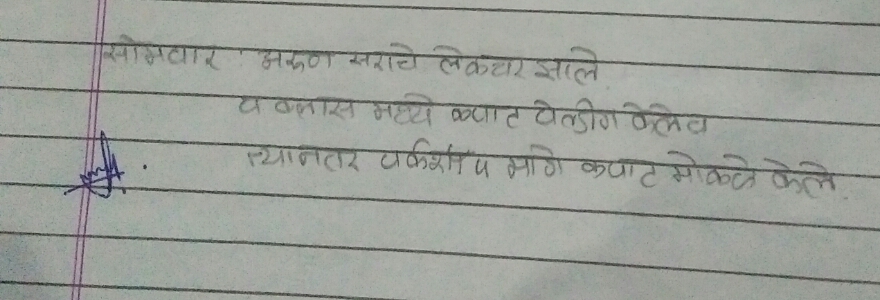 सोमवार अरुण सरांचे लेकचर झाले
व क्लास मध्ये कपाट वेल्डींग केले व
त्यानतर वर्कशॉप मागे कपाट मोकळे केले